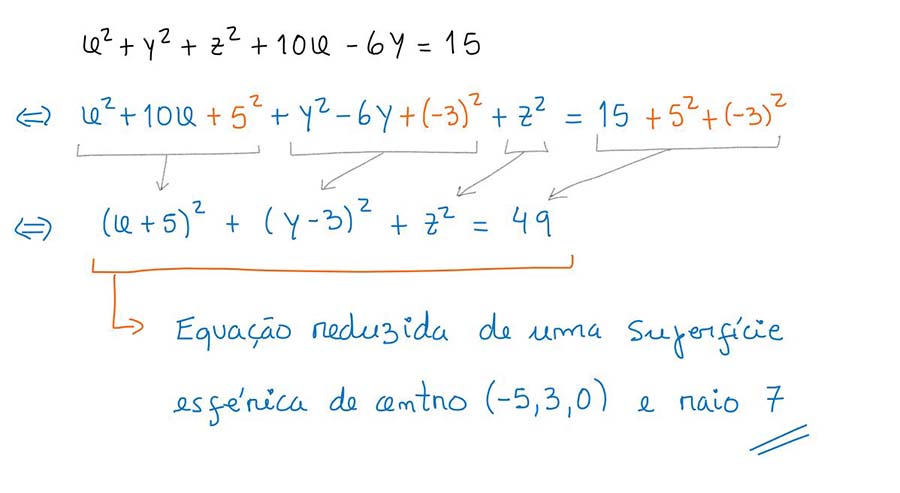 x² + y² + z² + 10x - 6y = 15
⇔ x² + 10x + 5² + y² - 6y + (-3)² + z² = 15 + 5² + (-3)²
⇔ (x + 5)² + (y - 3)² + z² = 49
Equação reduzida de uma superfície
esférica de centro (-5, 3, 0) e raio 7